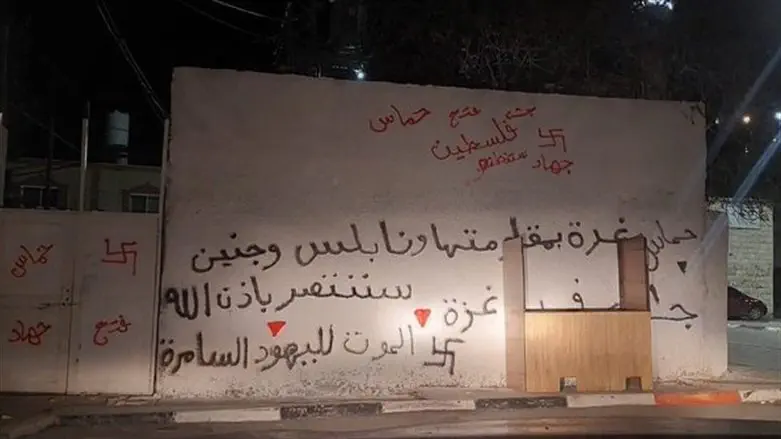 حماس فتح جبهة
فلسطين
جهاد
حماس غزة بمقاومتها ونابلس وجنين
ستنتصر باذن الله
غزة
الموت لليهود السامرة
حماس
جهاد
فتح